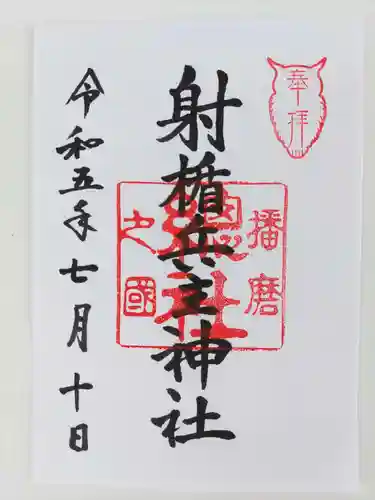 奉拝
射楯兵主神社
播磨
総社
之國
令和五年七月十日